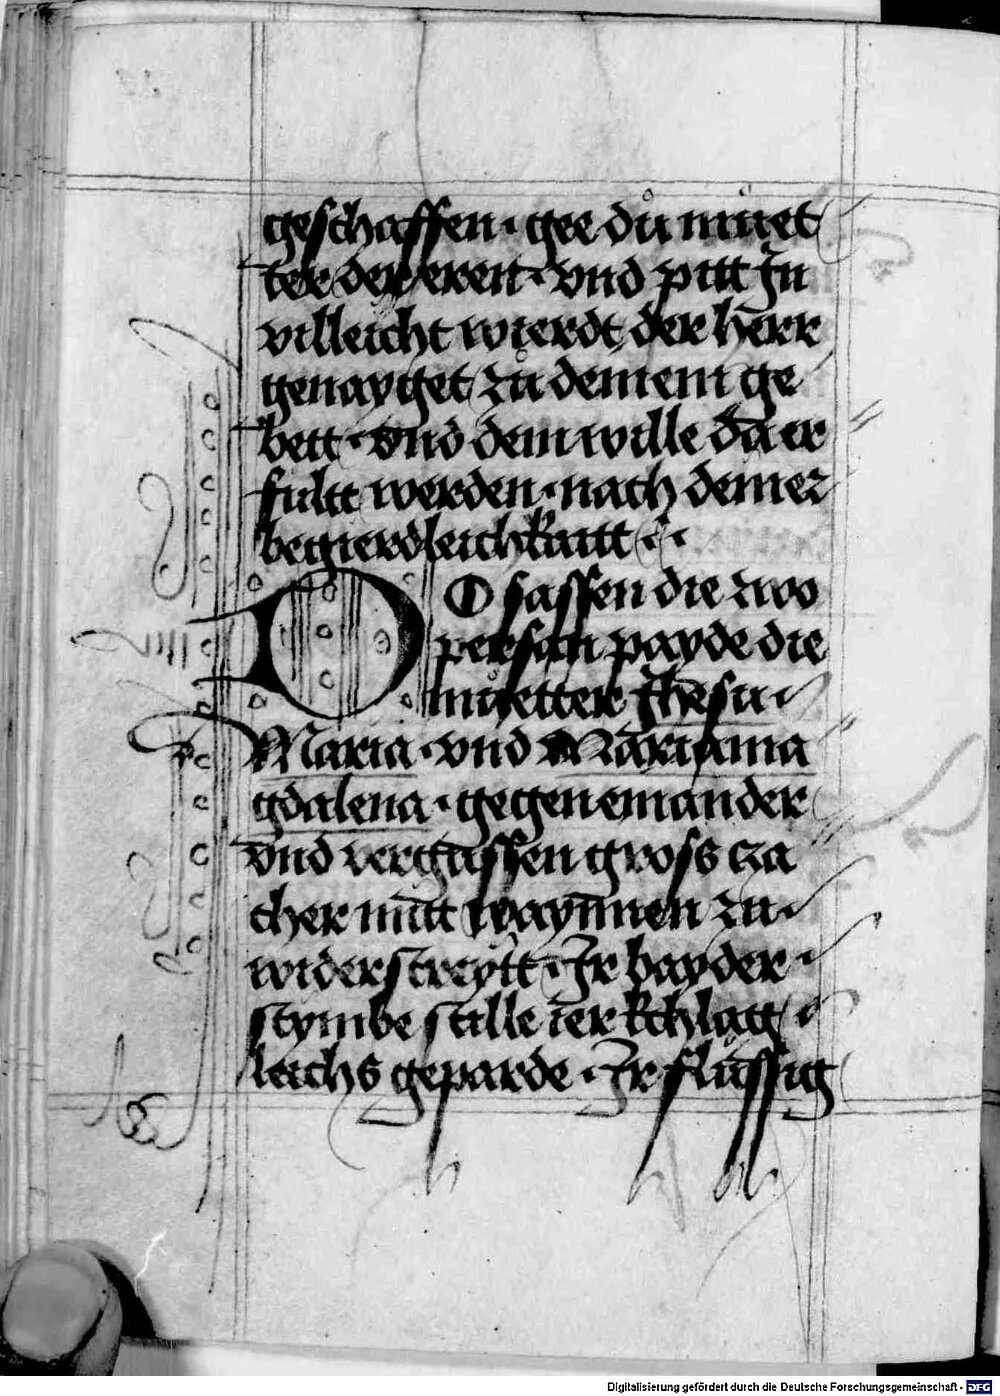 geschaffen · gee dů můet
ter der eren · vnd pitt Jn
villeicht wierdt der herr
genayget zů deinem ge
bett · vnd dein wille da er
fultt werden · nach deiner
begierdleichkaitt ·
DO sassen die zwo
person payde die
můetter Jhesu
Maria · vnd Mariama
gdalena · gegen einander
vnd vergussen gross cza
cher mitt waynnen zu
widerstreytt · Jr bayder
stymbe stille ier kchlatt
leichs geparde · Jr flussig
Digitalisierung gefördert durch die Deutsche Forschungsgemeinschaft - DFG